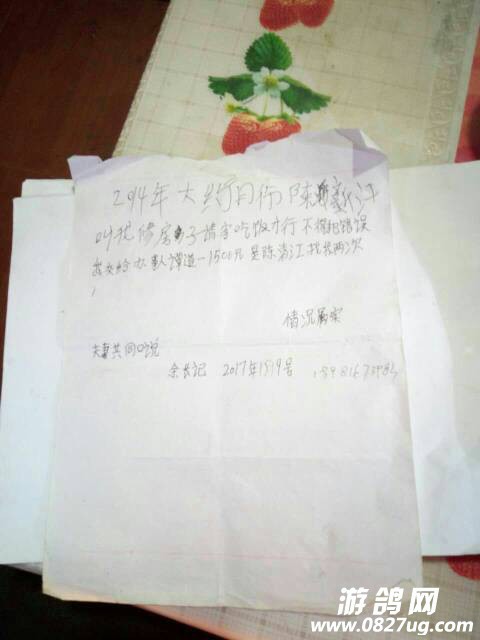 2014年大约月份陈新江
叫我修房子请客吃饭才行 不得犯错误
我交给办事人谭道一1500元 是陈清江找我两次
情况属实
夫妻共同口说
余长记 2017年1月19号
游鸽网
www.0827ug.com